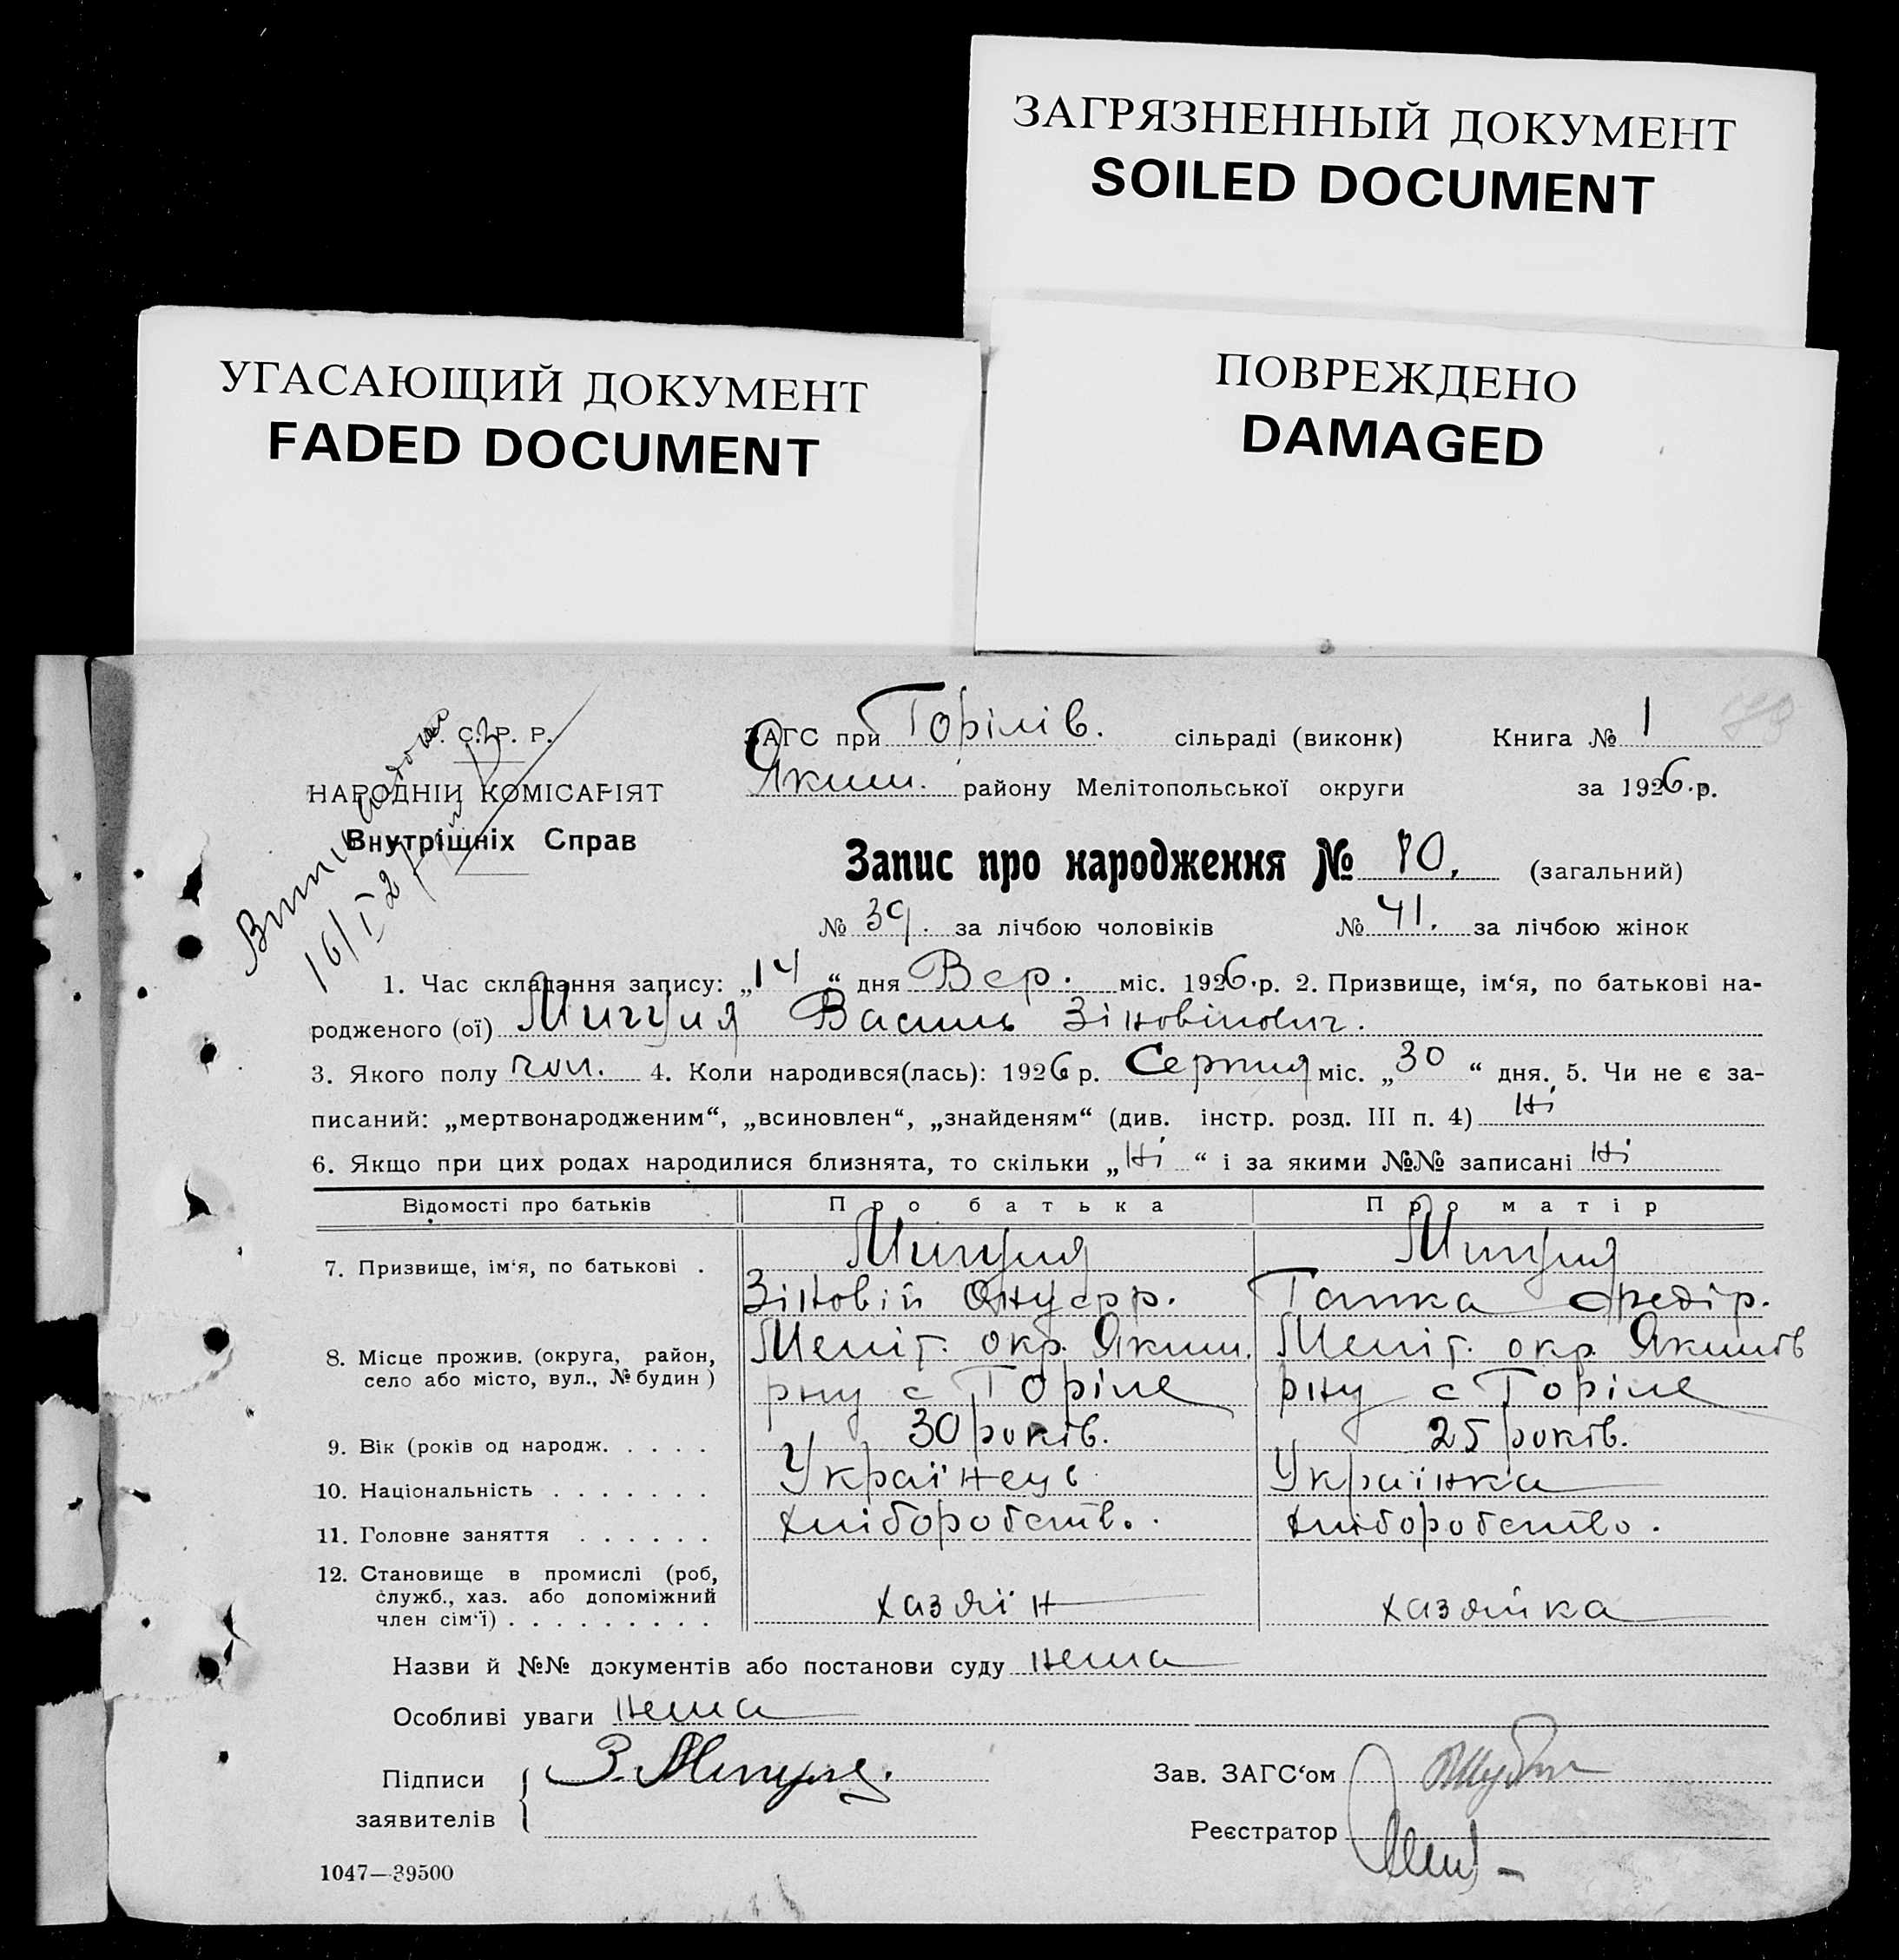 ЗАГРЯЗНЕННЫЙ ДОКУМЕНТ
SOILED DOCUMENT
УГАСАЮЩИЙ ДОКУМЕНТ
FADED DOCUMENT
ПОВРЕЖДЕНО
DAMAGED
С. Р. Р.
НАРОДНІЙ КОМІСАРІЯТ
Внутрішніх Справ
16/I 27
ЗАГС при Горілів. сільраді (виконк) Книга № 1
Яким. району Мелітопольської округи за 1926.р.
Запис про народження № 80. (загальний)
№ 39. за лічбою чоловіків № 41. за лічбою жінок
1. Час складання запису: „14“ дня Вер. міс. 1926.р. 2. Призвище, ім‘я, по батькові на-
родженого (ої) Мигуля Василь Зіновійович.
3. Якого полу чол. 4. Коли народився(лась): 1926 р. Серпня міс. „30“ дня. 5. Чи не є за-
писаний: „мертвонародженим“, „всиновлен“, „знайденям“ (див. інстр. розд. III п. 4) Ні
6. Якщо при цих родах народилися близнята, то скільки „Ні“ і за якими №№ записані Ні
Відомості про батьків Про батька Про матір
7. Призвище, ім‘я, по батькові . Мигуля Мигуля
Зіновій Онуфр. Ганка Федір.
8. Місце прожив. (округа, район, село або місто, вул., № будин) Меліт. окр. Яким. Меліт. окр. Якимів
рну с Горіле рну с Горіле
9. Вік (років од народж. . . . . 30 років. 25 років.
10. Національність . . . . . . . Українець Українка
11. Головне заняття . . . . . . хліборобство. хліборобство.
12. Становище в промислі (роб, служб., хаз. або допоміжний член сім‘ї) . . . . . . . . . хазяїн хазяйка
Назви й №№ документів або постанови суду нема
Особливі уваги нема
Підписи заявителів З. Мигуля.
Зав. ЗАГС‘ом
Реєстратор
1047—39500